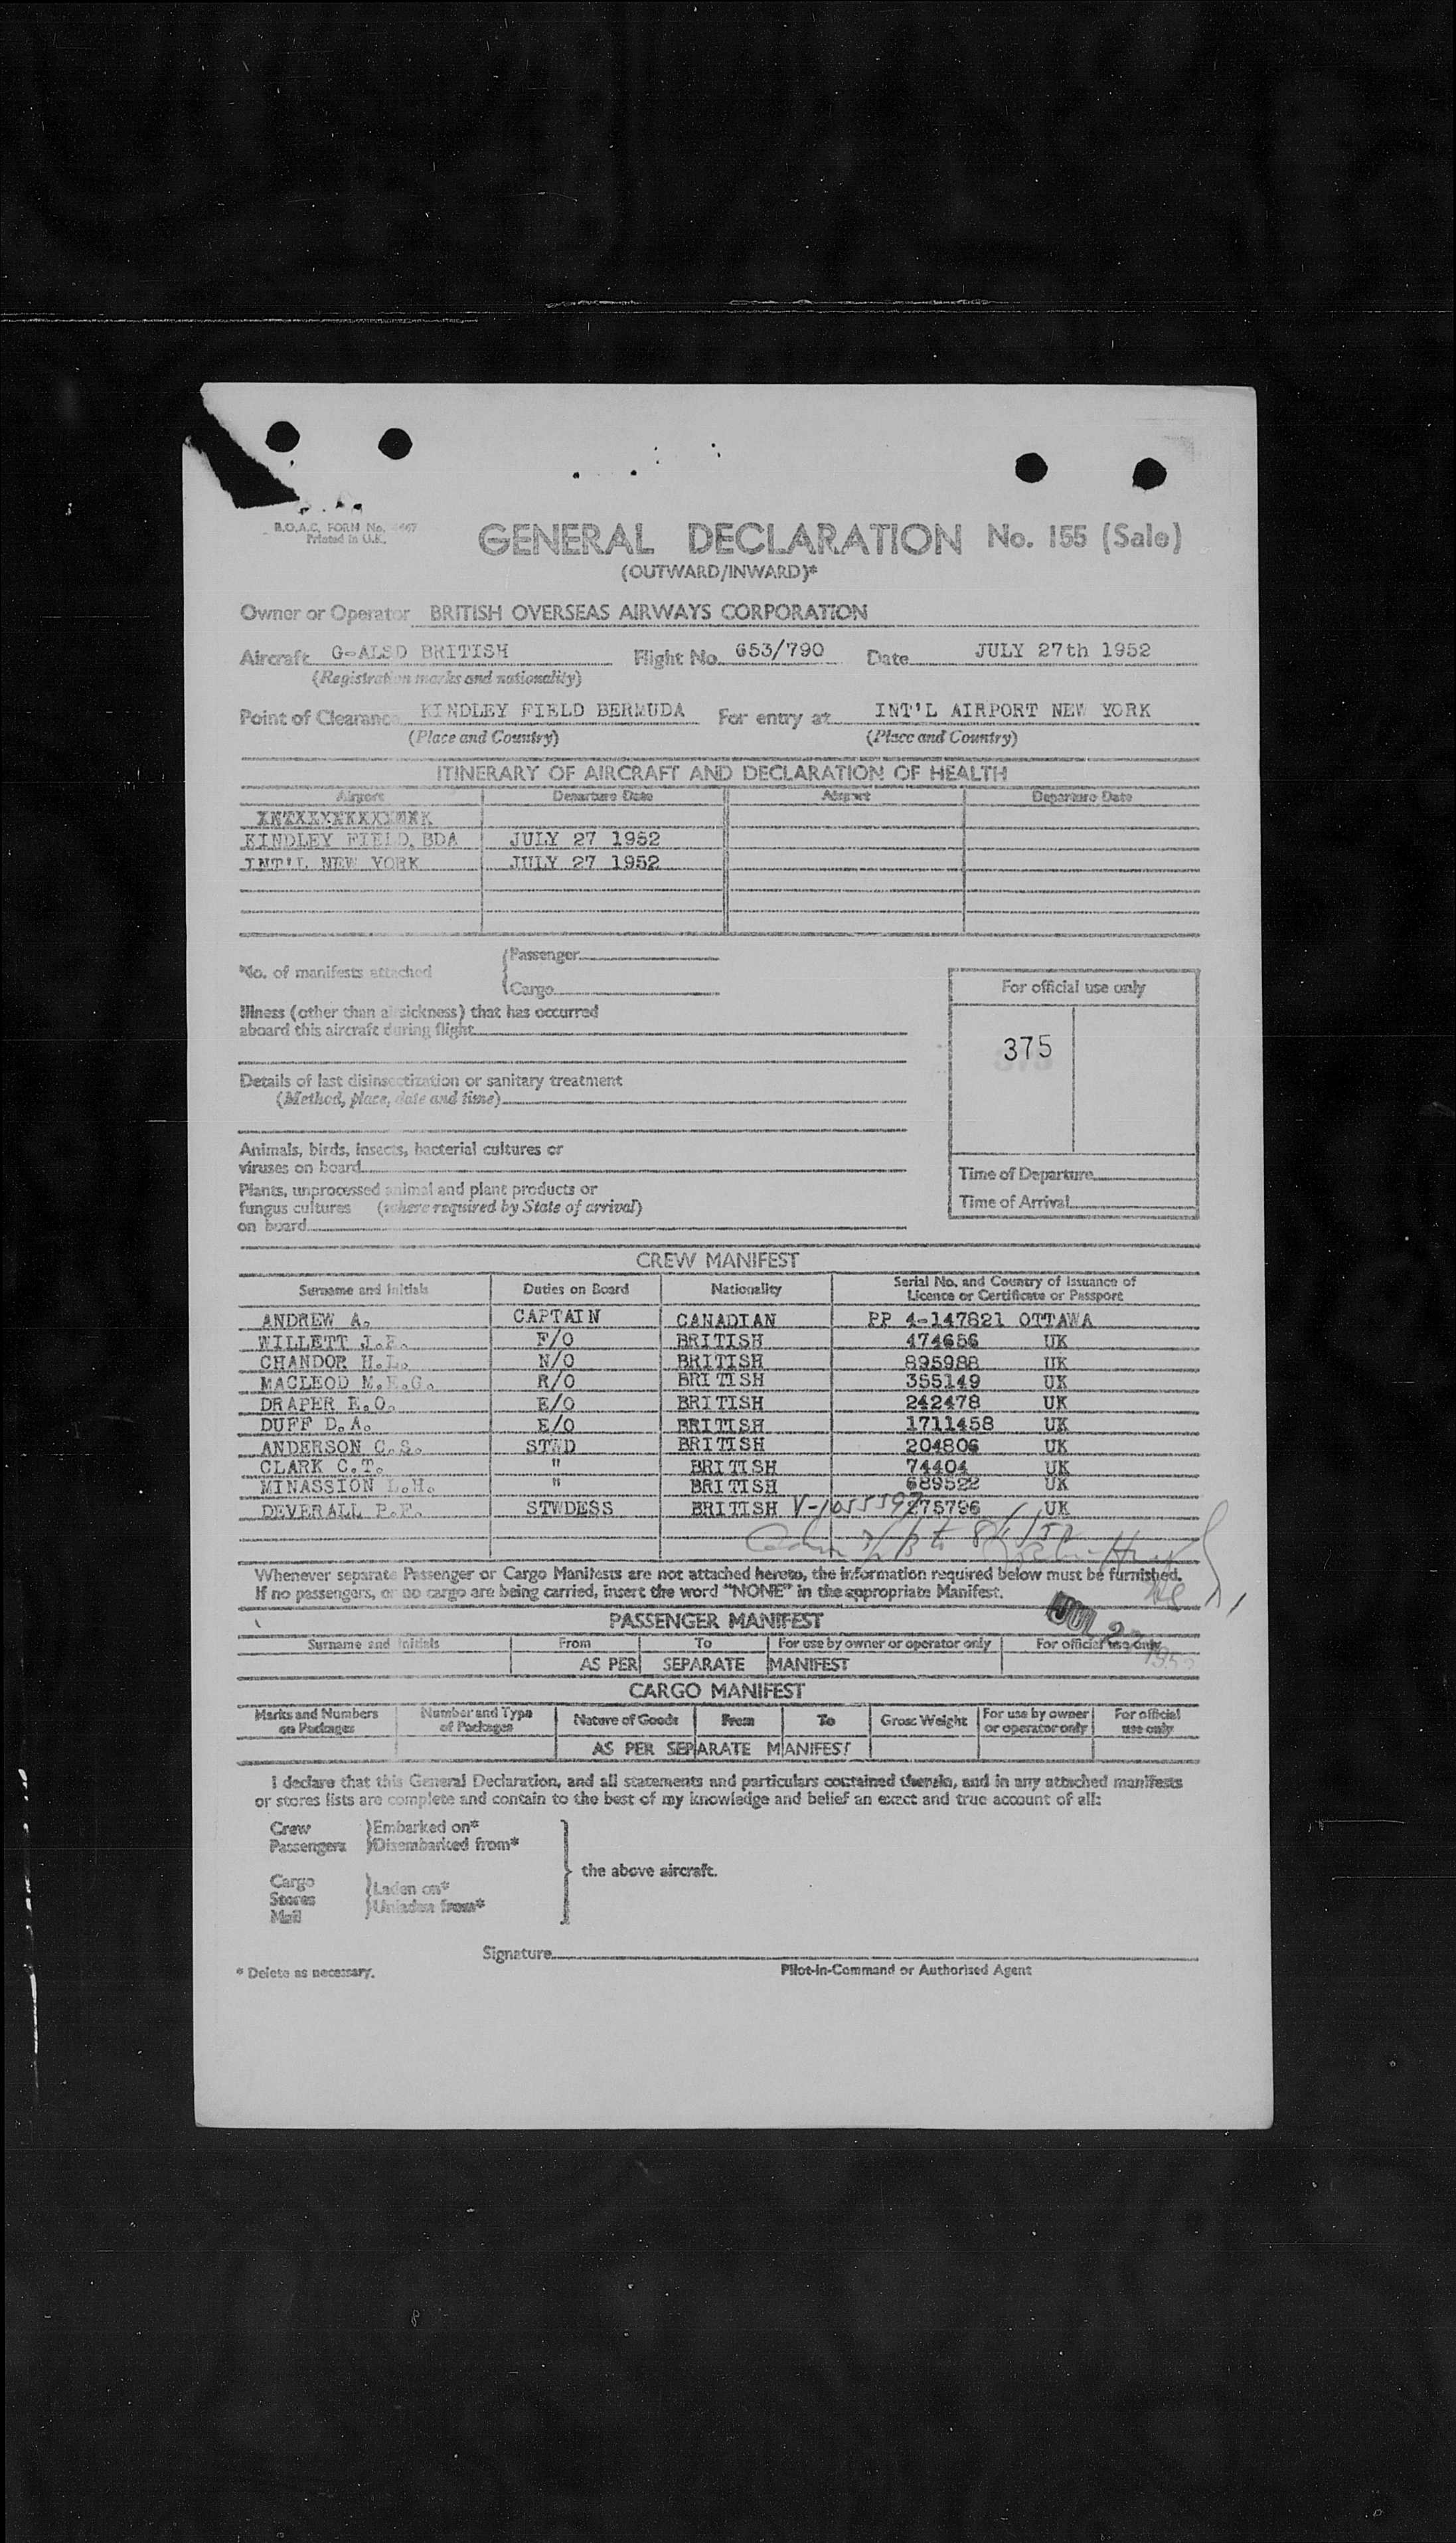 B.O.A.C. FORM No.
Printed in U.K.
GENERAL DECLARATION No. 155 (Sale)
(OUTWARD/INWARD)*
Owner or Operator BRITISH OVERSEAS AIRWAYS CORPORATION
Aircraft G-ALSD BRITISH Flight No. 653/790 Date JULY 27th 1952
(Registration marks and nationality)
Point of Clearance KINDLEY FIELD BERMUDA For entry at INT'L AIRPORT NEW YORK
(Place and Country) (Place and Country)
ITINERARY OF AIRCRAFT AND DECLARATION OF HEALTH
Airport Departure Date Airport Departure Date
KINDLEY FIELD, BDA JULY 27 1952
INT'L NEW YORK JULY 27 1952
*No. of manifests attached Passenger
Cargo
For official use only
Illness (other than airsickness) that has occurred
aboard this aircraft during flight
375
Details of last disinsectization or sanitary treatment
(Method, place, date and time)
Animals, birds, insects, bacterial cultures or
viruses on board
Time of Departure
Plants, unprocessed animal and plant products or
fungus cultures (where required by State of arrival)
Time of Arrival
on board
CREW MANIFEST
Surname and Initials Duties on Board Nationality Serial No. and Country of Issuance of
Licence or Certificate or Passport
ANDREW A. CAPTAIN CANADIAN PP 4-147821 OTTAWA
WILLETT J.F. F/O BRITISH 474656 UK
CHANDOR H.L. N/O BRITISH 895988 UK
MACLEOD M.K.G. R/O BRITISH 355149 UK
DRAPER E.O. E/O BRITISH 242478 UK
DUFF D.A. E/O BRITISH 1711458 UK
ANDERSON C.S. STWD BRITISH 204806 UK
CLARK C.T. " BRITISH 74404 UK
MINASSION L.H. " BRITISH 689522 UK
DEVERALL P.F. STWDESS BRITISH V-1055597 275796 UK
Whenever separate Passenger or Cargo Manifests are not attached hereto, the information required below must be furnished.
If no passengers, or no cargo are being carried, insert the word "NONE" in the appropriate Manifest.
PASSENGER MANIFEST
JUL 27 1952
Surname and Initials From To For use by owner or operator only For official use only
AS PER SEPARATE MANIFEST
CARGO MANIFEST
Marks and Numbers on Packages Number and Type of Packages Nature of Goods From To Gross Weight For use by owner or operator only For official use only
AS PER SEPARATE MANIFEST
I declare that this General Declaration, and all statements and particulars contained therein, and in any attached manifests
or stores lists are complete and contain to the best of my knowledge and belief an exact and true account of all:
Crew Embarked on*
Passengers Disembarked from*
the above aircraft.
Cargo Laden on*
Stores Unladen from*
Mail
Signature
* Delete as necessary. Pilot-in-Command or Authorised Agent